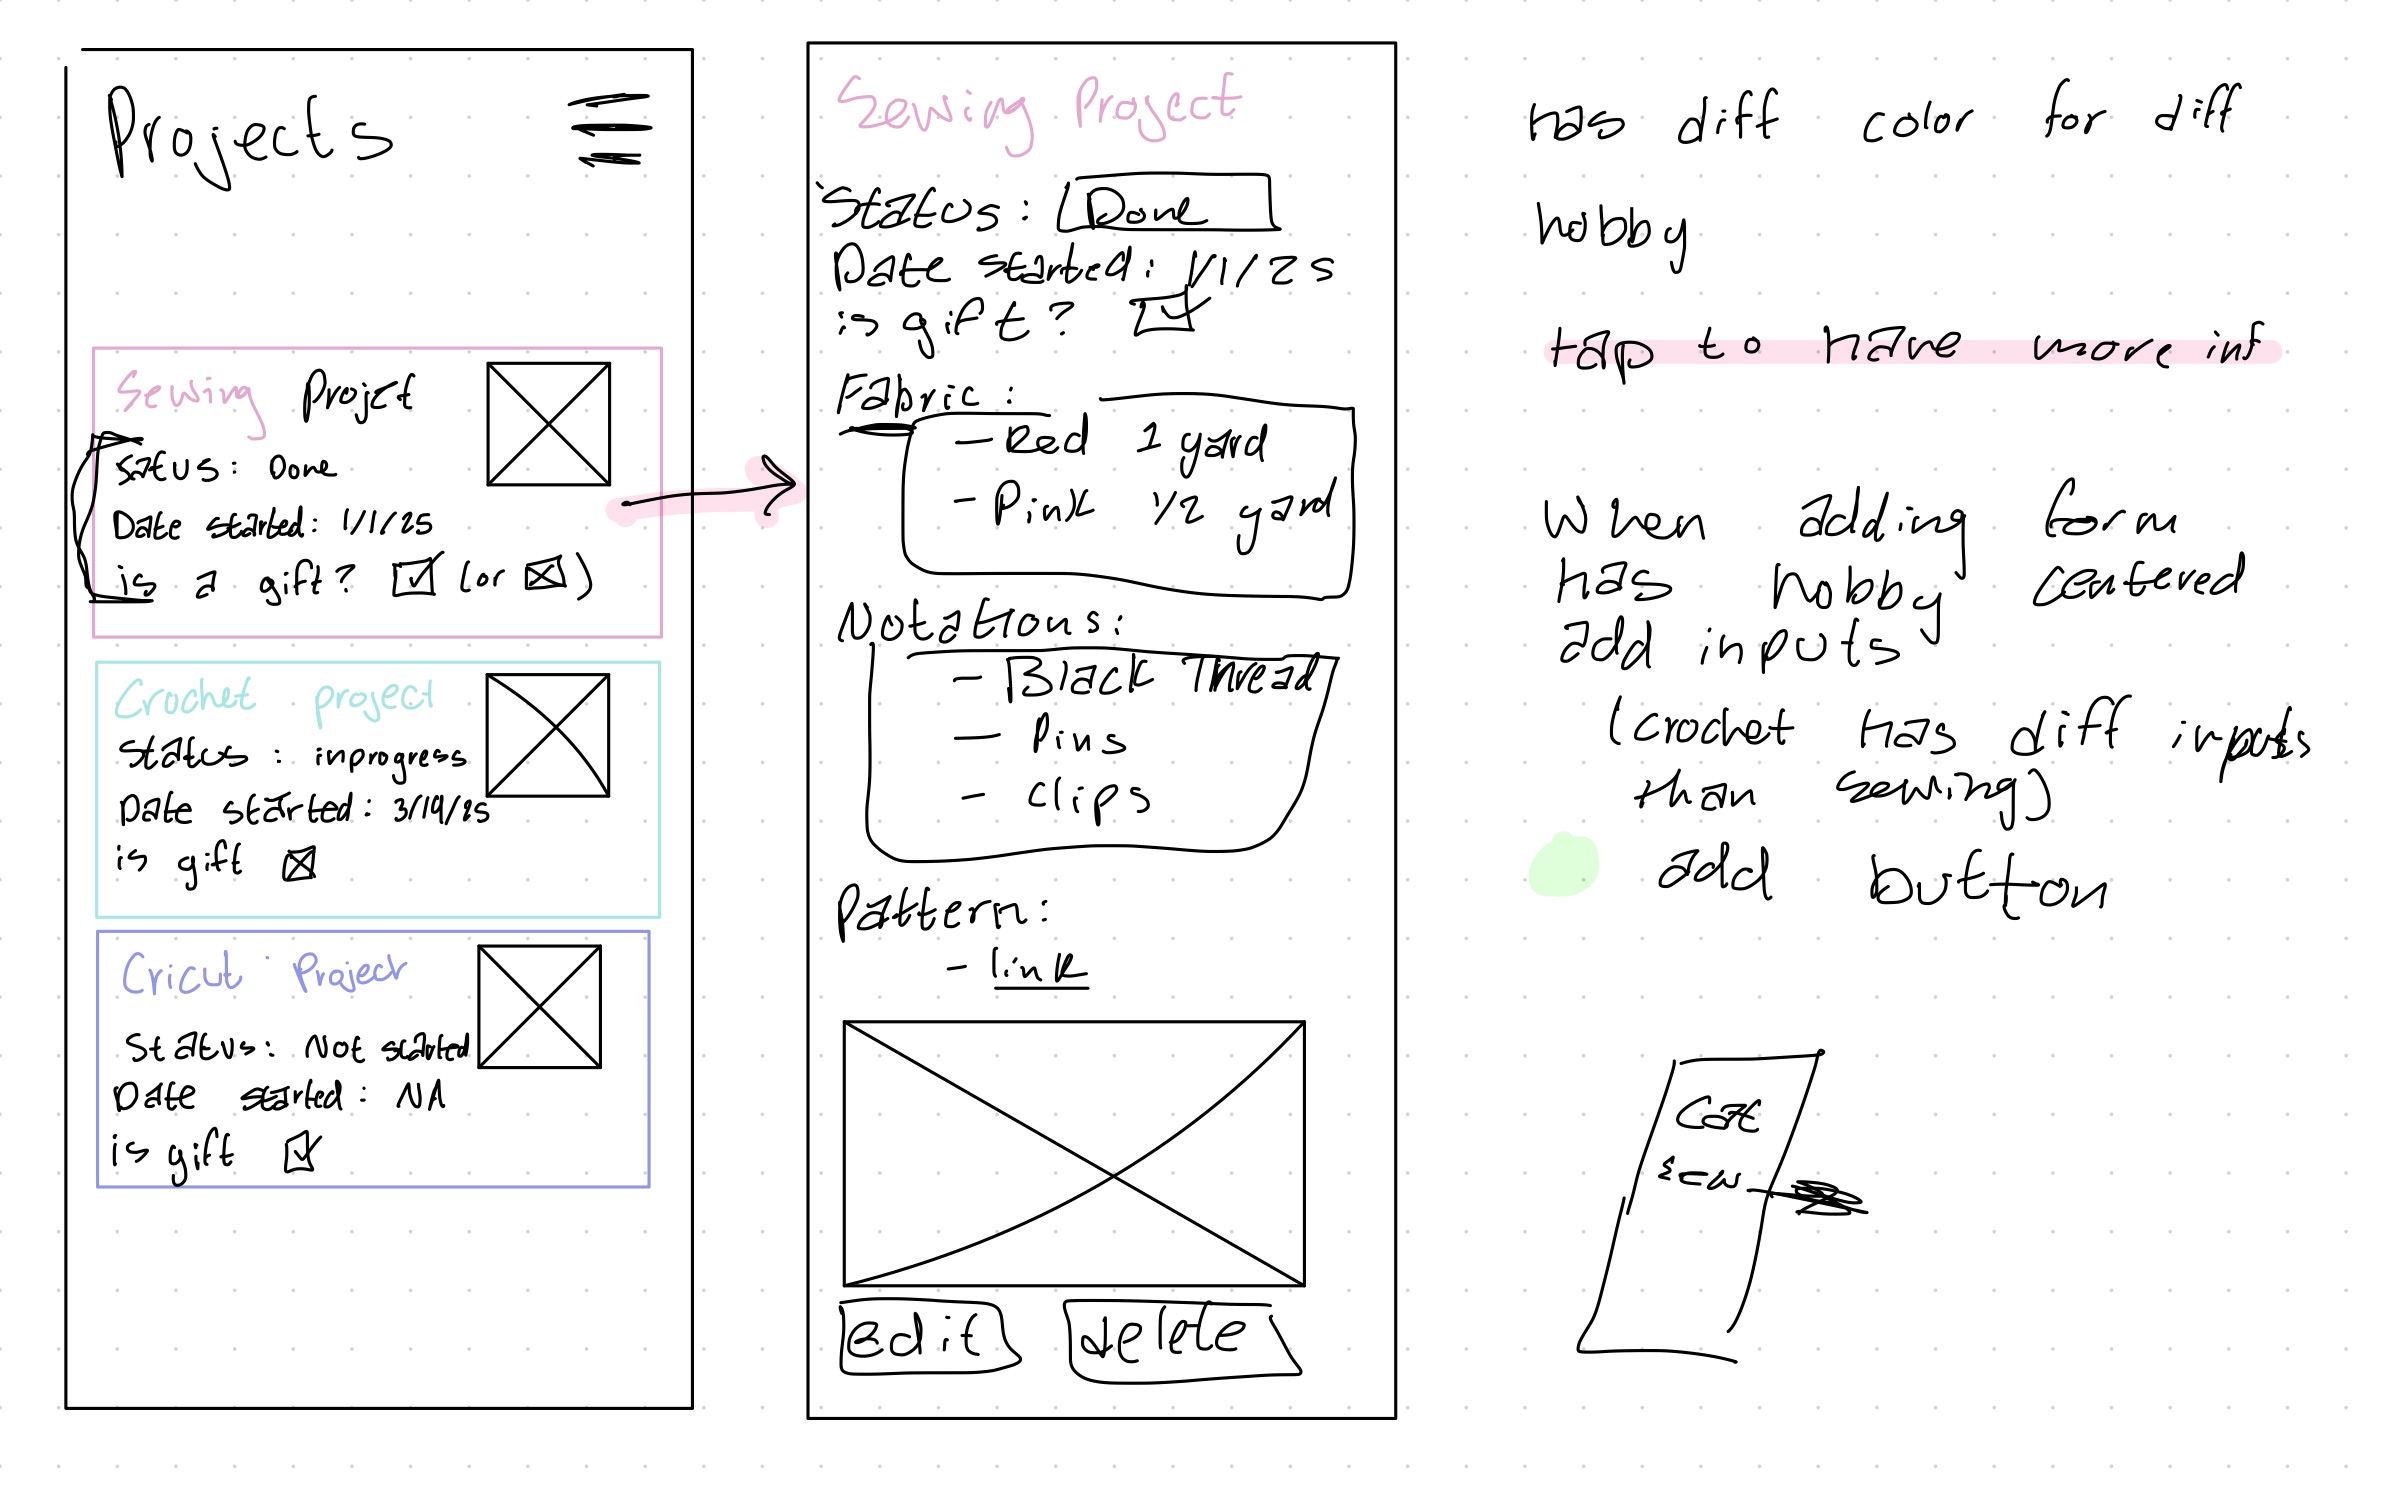 Projects
Sewing Project
Satus: Done
Date started: 1/1/25
is a gift? (or )
Crochet project
Status: inprogress
Date started: 3/19/25
is gift
Cricut Project
Status: Not started
Date started: NA
is gift
Sewing Project
Status: Done
Date started: 1/1/25
is gift?
Fabric:
- Red 1 yard
- Pink 1/2 yard
Notations:
- Black Thread
- Pins
- Clips
Pattern:
- link
edit delete
has diff color for diff
hobby
tap to have more inf
When adding form
has hobby centered
add inputs
(crochet has diff inputs
than sewing)
add button
Cat